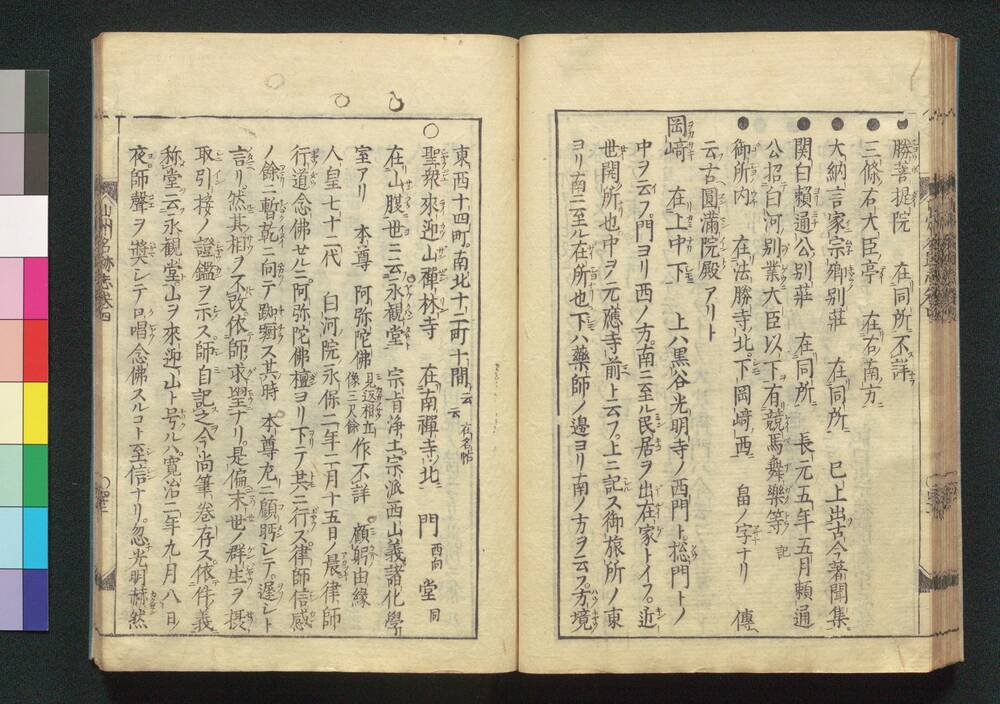 ● 勝菩提院 在同所不詳
● 三條右大臣亭 在右南方
● 大納言家宗卿別莊 在同所 已上出古今著聞集
● 関白頼通公別莊 在同所 長元五年五月頼通
公招白河別業大臣以下有競馬舞樂等 記
● 御所内 在法勝寺北下岡﨑西 畠ノ字ナリ 傳
云古圓滿院殿アリト
岡﨑 在上中下 上ハ黒谷光明寺ノ西門ト捴門トノ
中ヲ云フ門ヨリ西ノ方南ニ至ル民居ヲ出在家トイフ近
世開所也中ヲ元應寺前上云フ上ニ記ス御旅所ノ東
ヨリ南ニ至ル在所也下ハ藥師ノ邊ヨリ南ノ方ヲ云フ方境
東西十四町南北十二町十間云云 在名帖
○ 聖衆來迎山禪林寺 在南禪寺ノ北 門 西向 堂 同
在山腹世ニ云永観堂 宗肯淨土宗派西山義諸化學
室アリ 本尊 阿弥陀佛 見返相立像三尺餘 作不詳 顧躬由縁
人皇七十二代 白河院永保二年二月十五日ノ晨律師
行道念佛セルニ阿弥陀佛檀ヨリ下テ共ニ行ス律師信感
ノ餘ニ暫乾ニ向テ踟蹰ス其時 本尊左ニ顧眄シテ遅シト
言リ然其相ヲ不改依師求望ナリ是偏末世ノ群生ヲ摂
取引接ノ證鑑ヲ示ス師自記之今尚筆巻存ス依件ノ義
称堂云永観堂山ヲ來迎山ト号ルハ寛治二年九月八日ノ
夜師聲ヲ奬シテ口唱念佛スルコト至信ナリ忽光明赫然
山州名跡志巻四